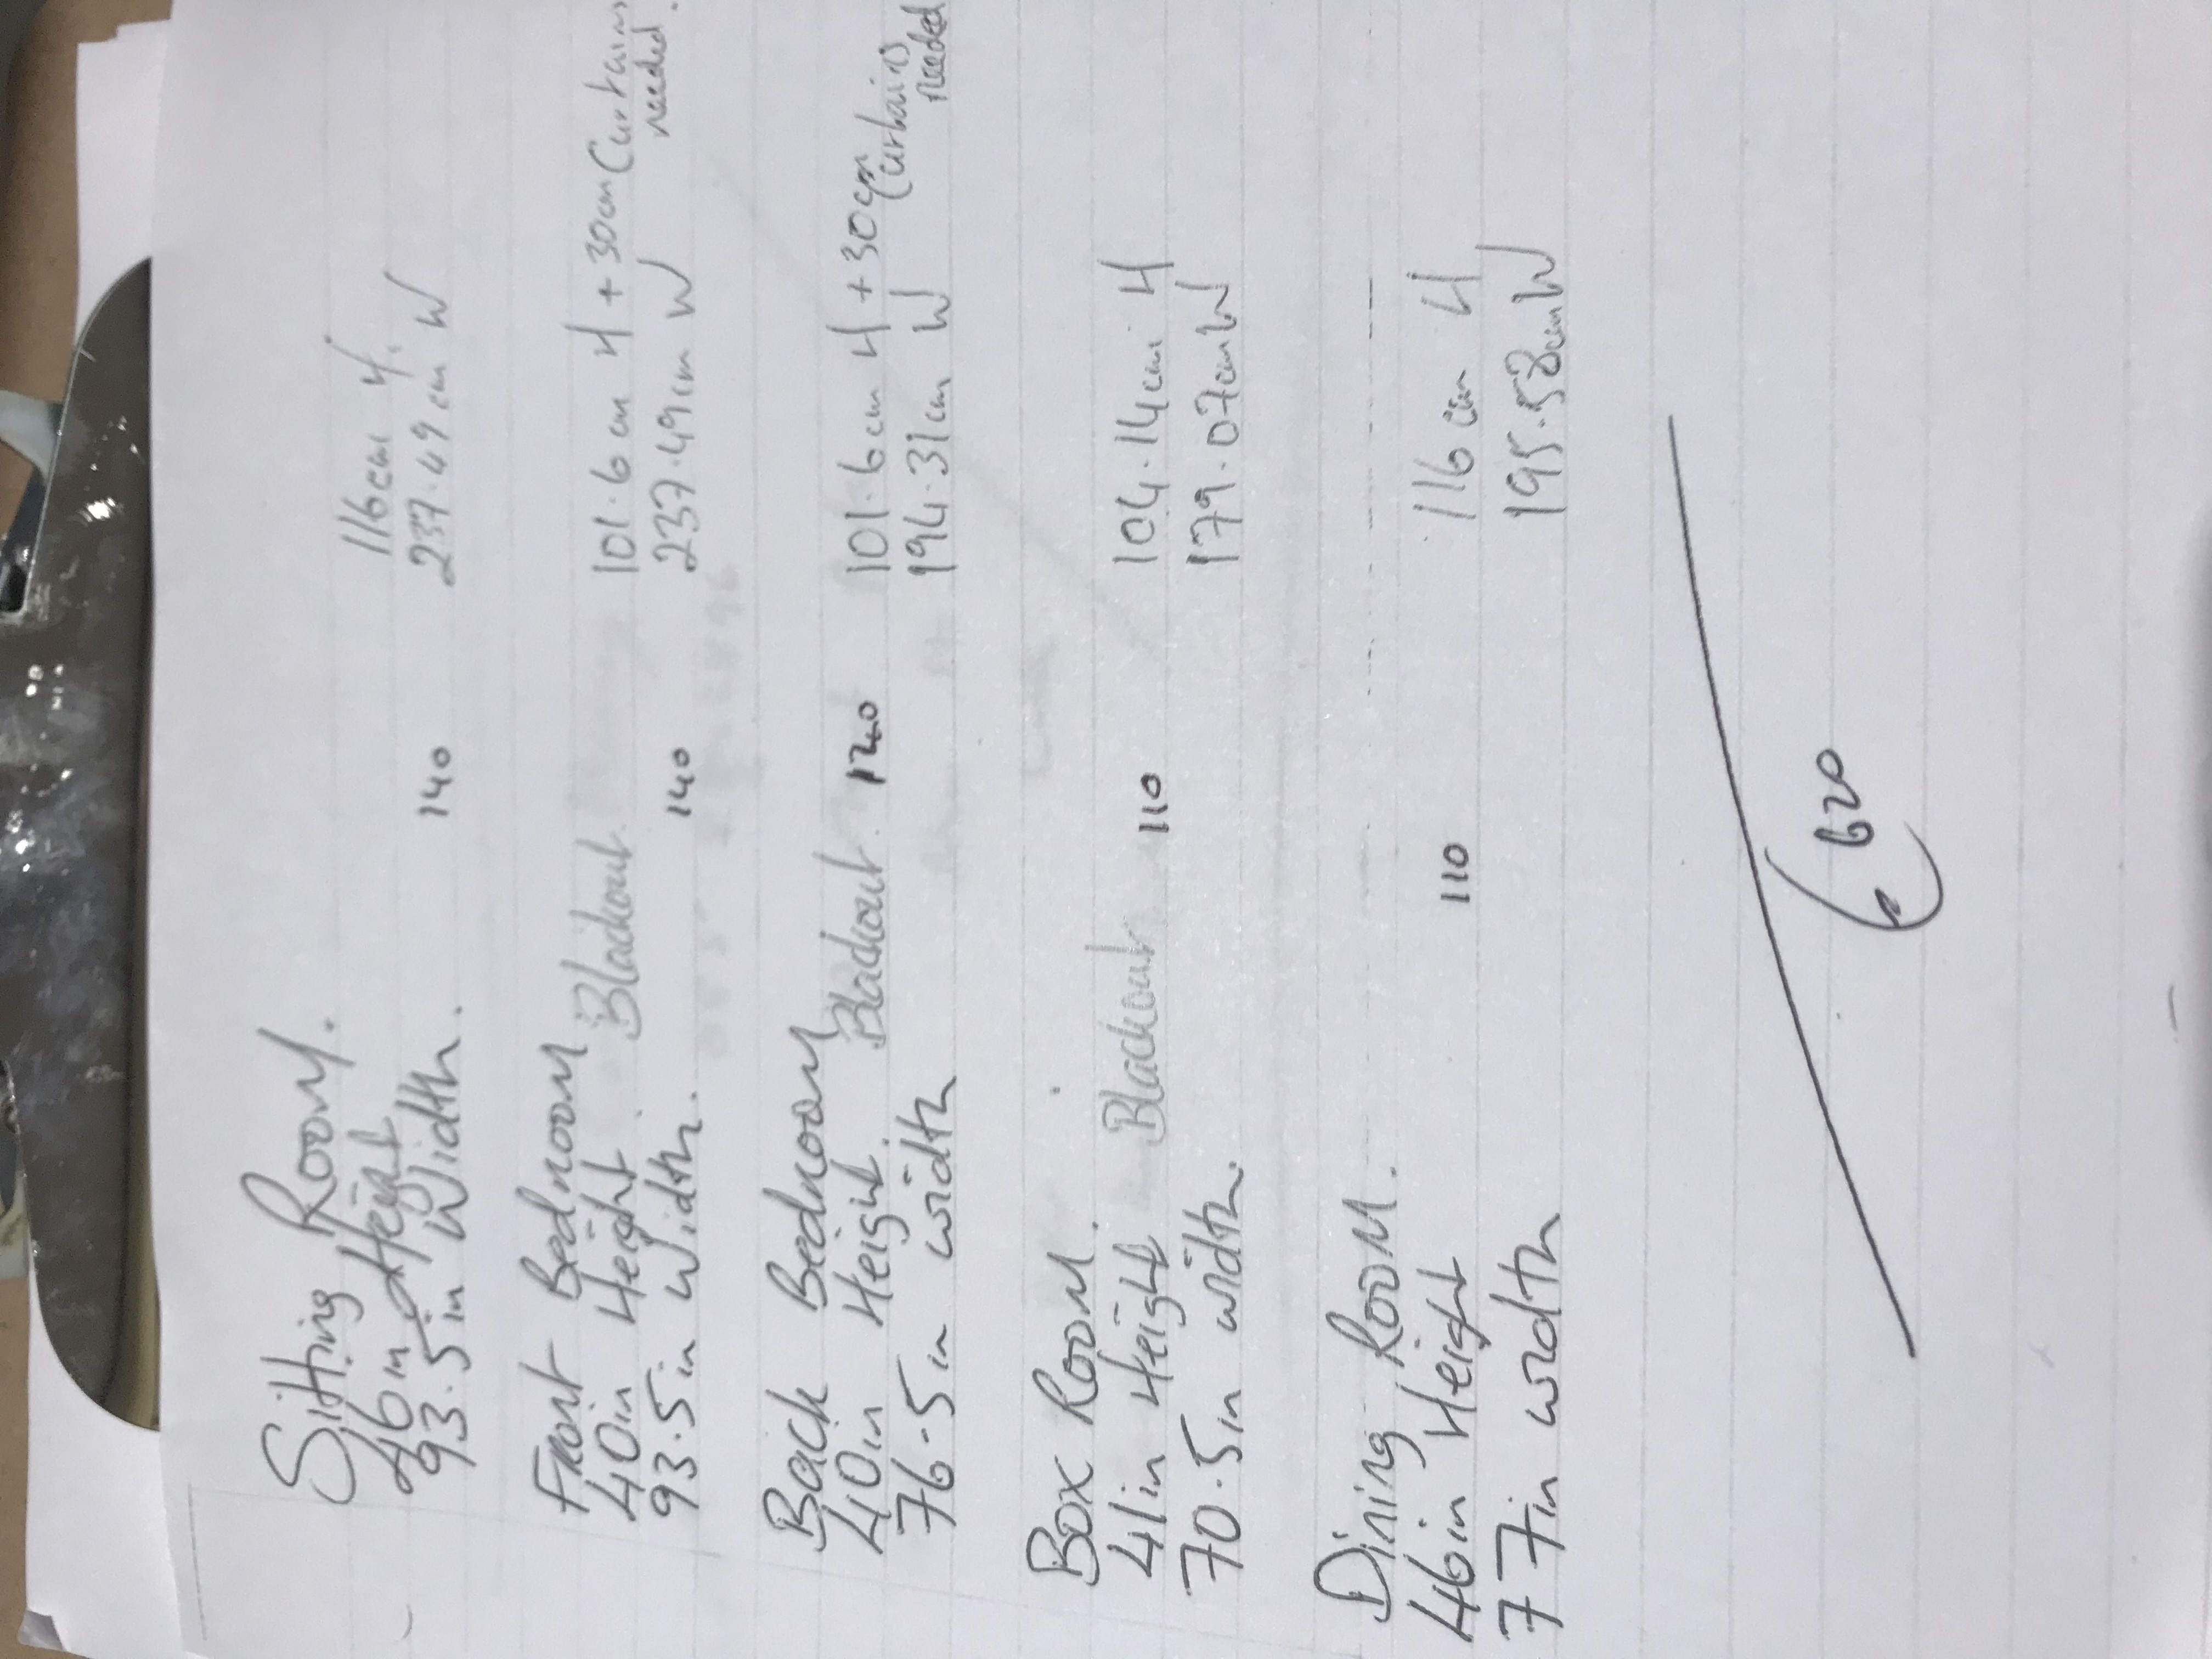 Sitting Room.
46in Height 116cm H.
93.5in Width. 140 237.49cm W
Front Bedroom
40in Height. Blackout 101.6cm H + 30cm Curtains needed.
93.5in width. 140 237.49cm W
Back Bedroom
40in Height. Blackout 120 101.6cm H + 30cm Curtains needed
76.5in width 194.31cm W
Box Room.
41in Height Blackout 110 104.14cm H
70.5in width. 179.07cm W
Dining Room.
46in Height 110 116cm H
77in width 195.58cm W
€ 620